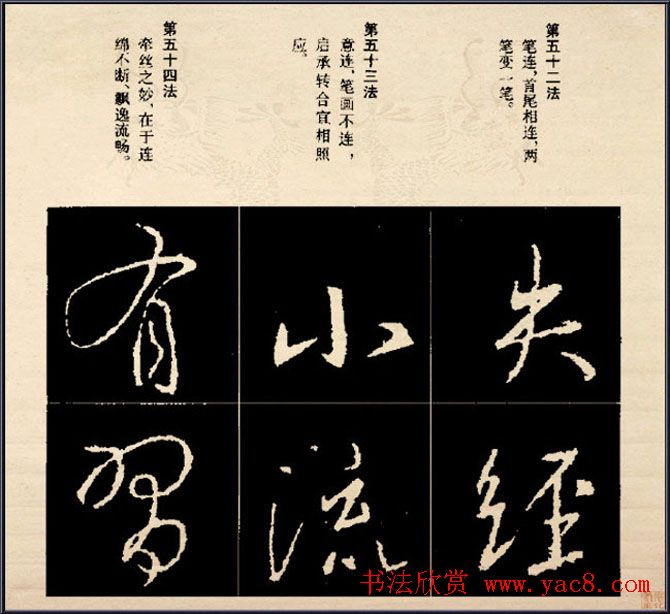 第五十二法
笔连，首尾相连，两
笔变一笔。
第五十三法
意连，笔画不连，
启承转合宜相照
应。
第五十四法
牵丝之妙，在于连
绵不断、飘逸流畅。
失
经
小
流
有
习
书法欣赏 www.yac8.com